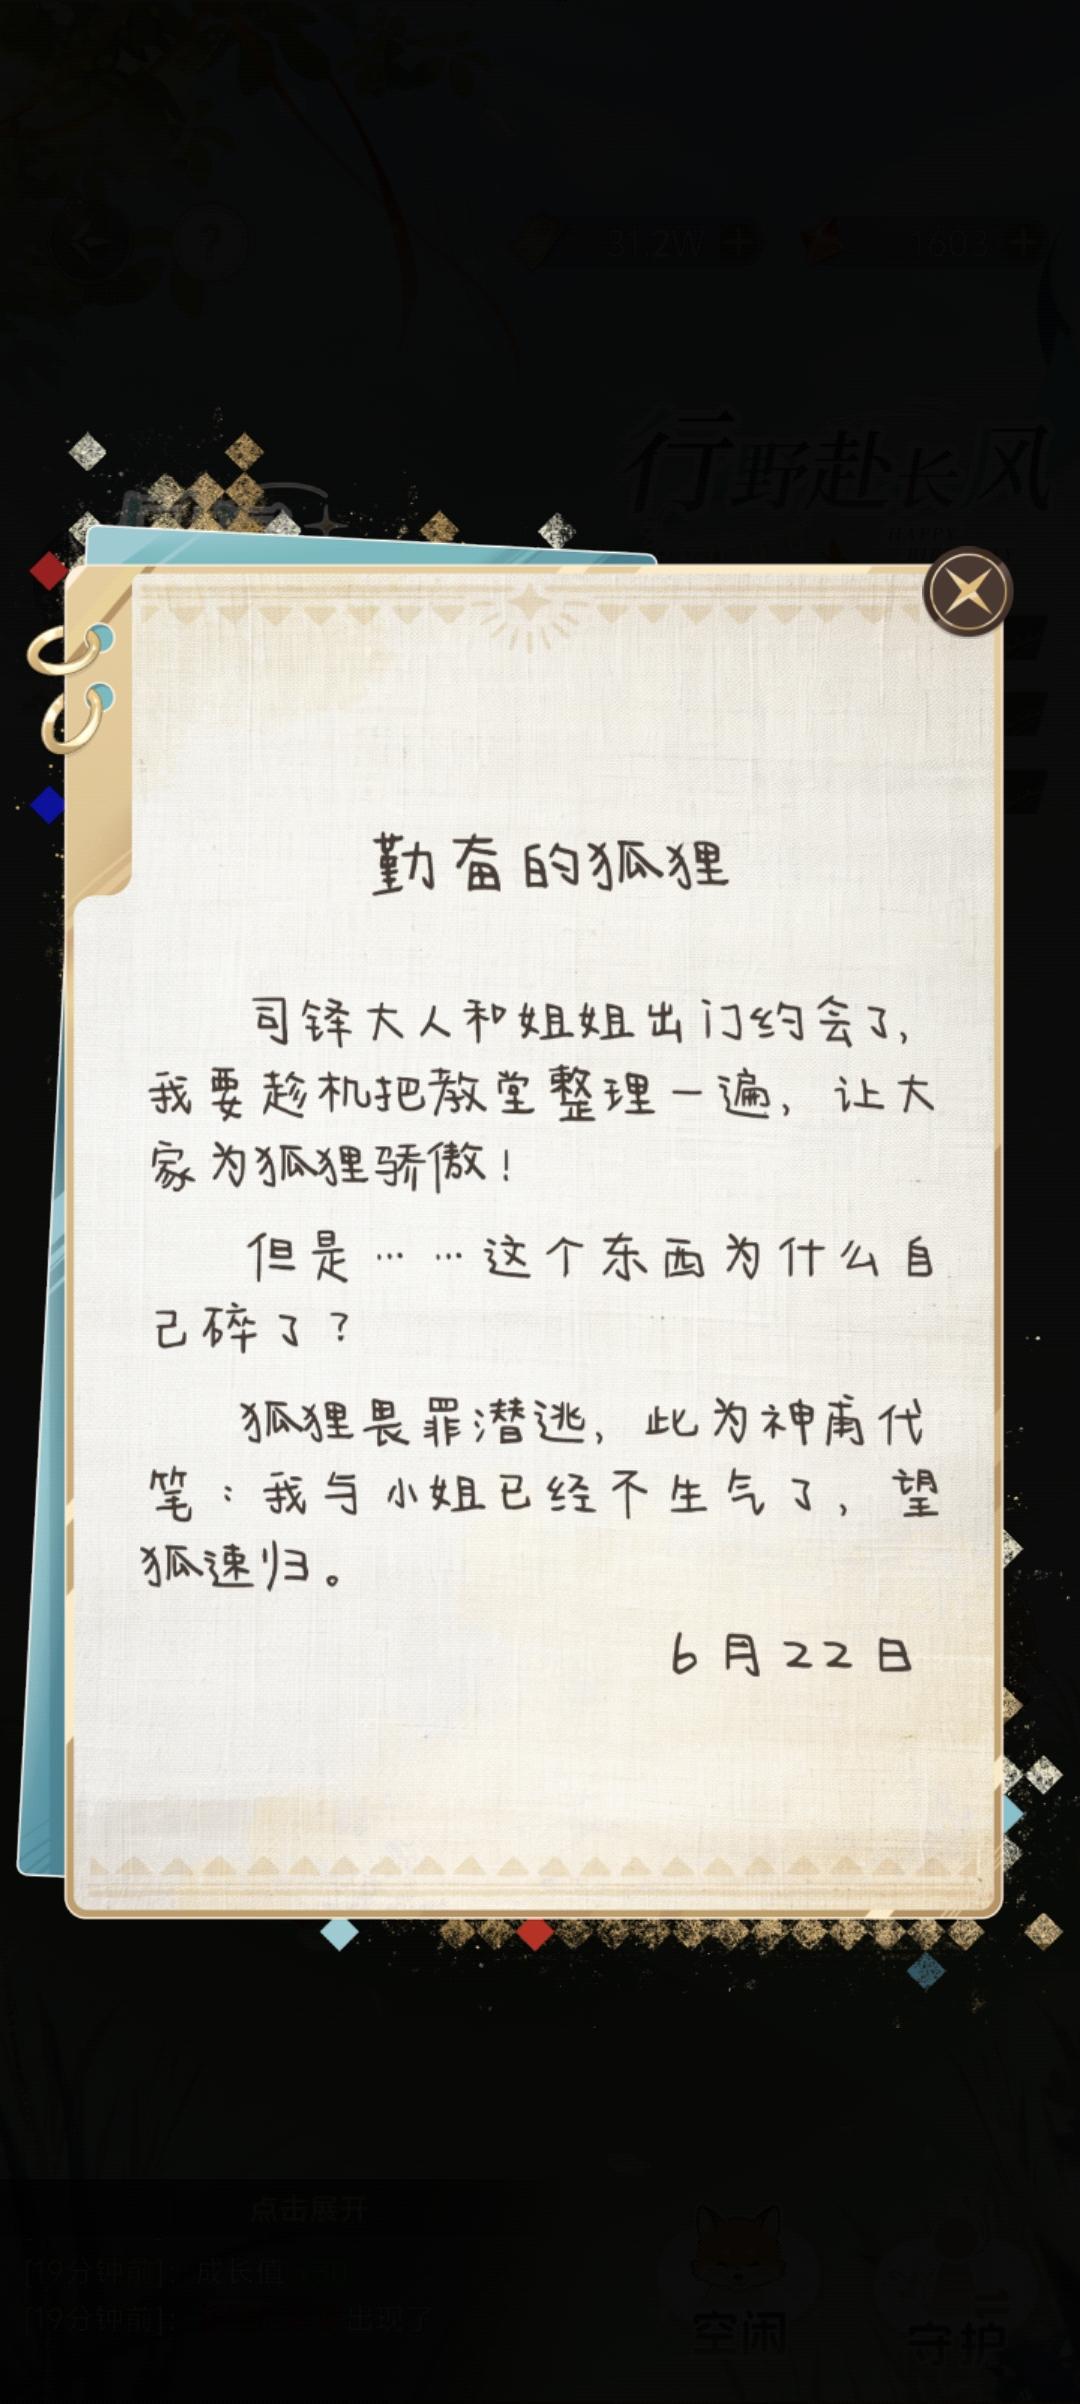 31.2W
1603
行野赴长风
HAPPY
勤奋的狐狸
司铎大人和姐姐出门约会了，
我要趁机把教堂整理一遍，让大
家为狐狸骄傲！
但是……这个东西为什么自
己碎了？
狐狸畏罪潜逃，此为神甫代
笔：我与小姐已经不生气了，望
狐速归。
6月22日
点击展开
[19分钟前]：成长值
[19分钟前]：
出现了
空闲
守护